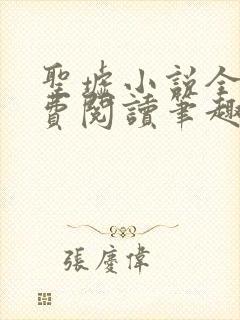 聖墟小説全
費閱讀筆趣
張慶偉